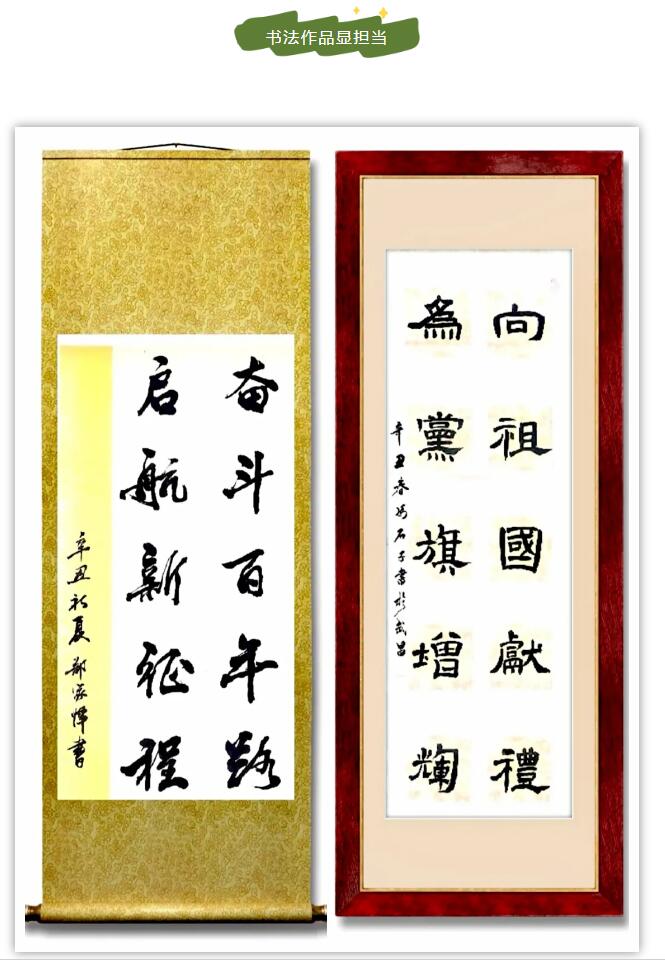 书法作品显担当
奋斗百年路
启航新征程
辛丑初夏 郑家書
向祖國獻禮
為黨旗增
辛丑春石子書於武昌